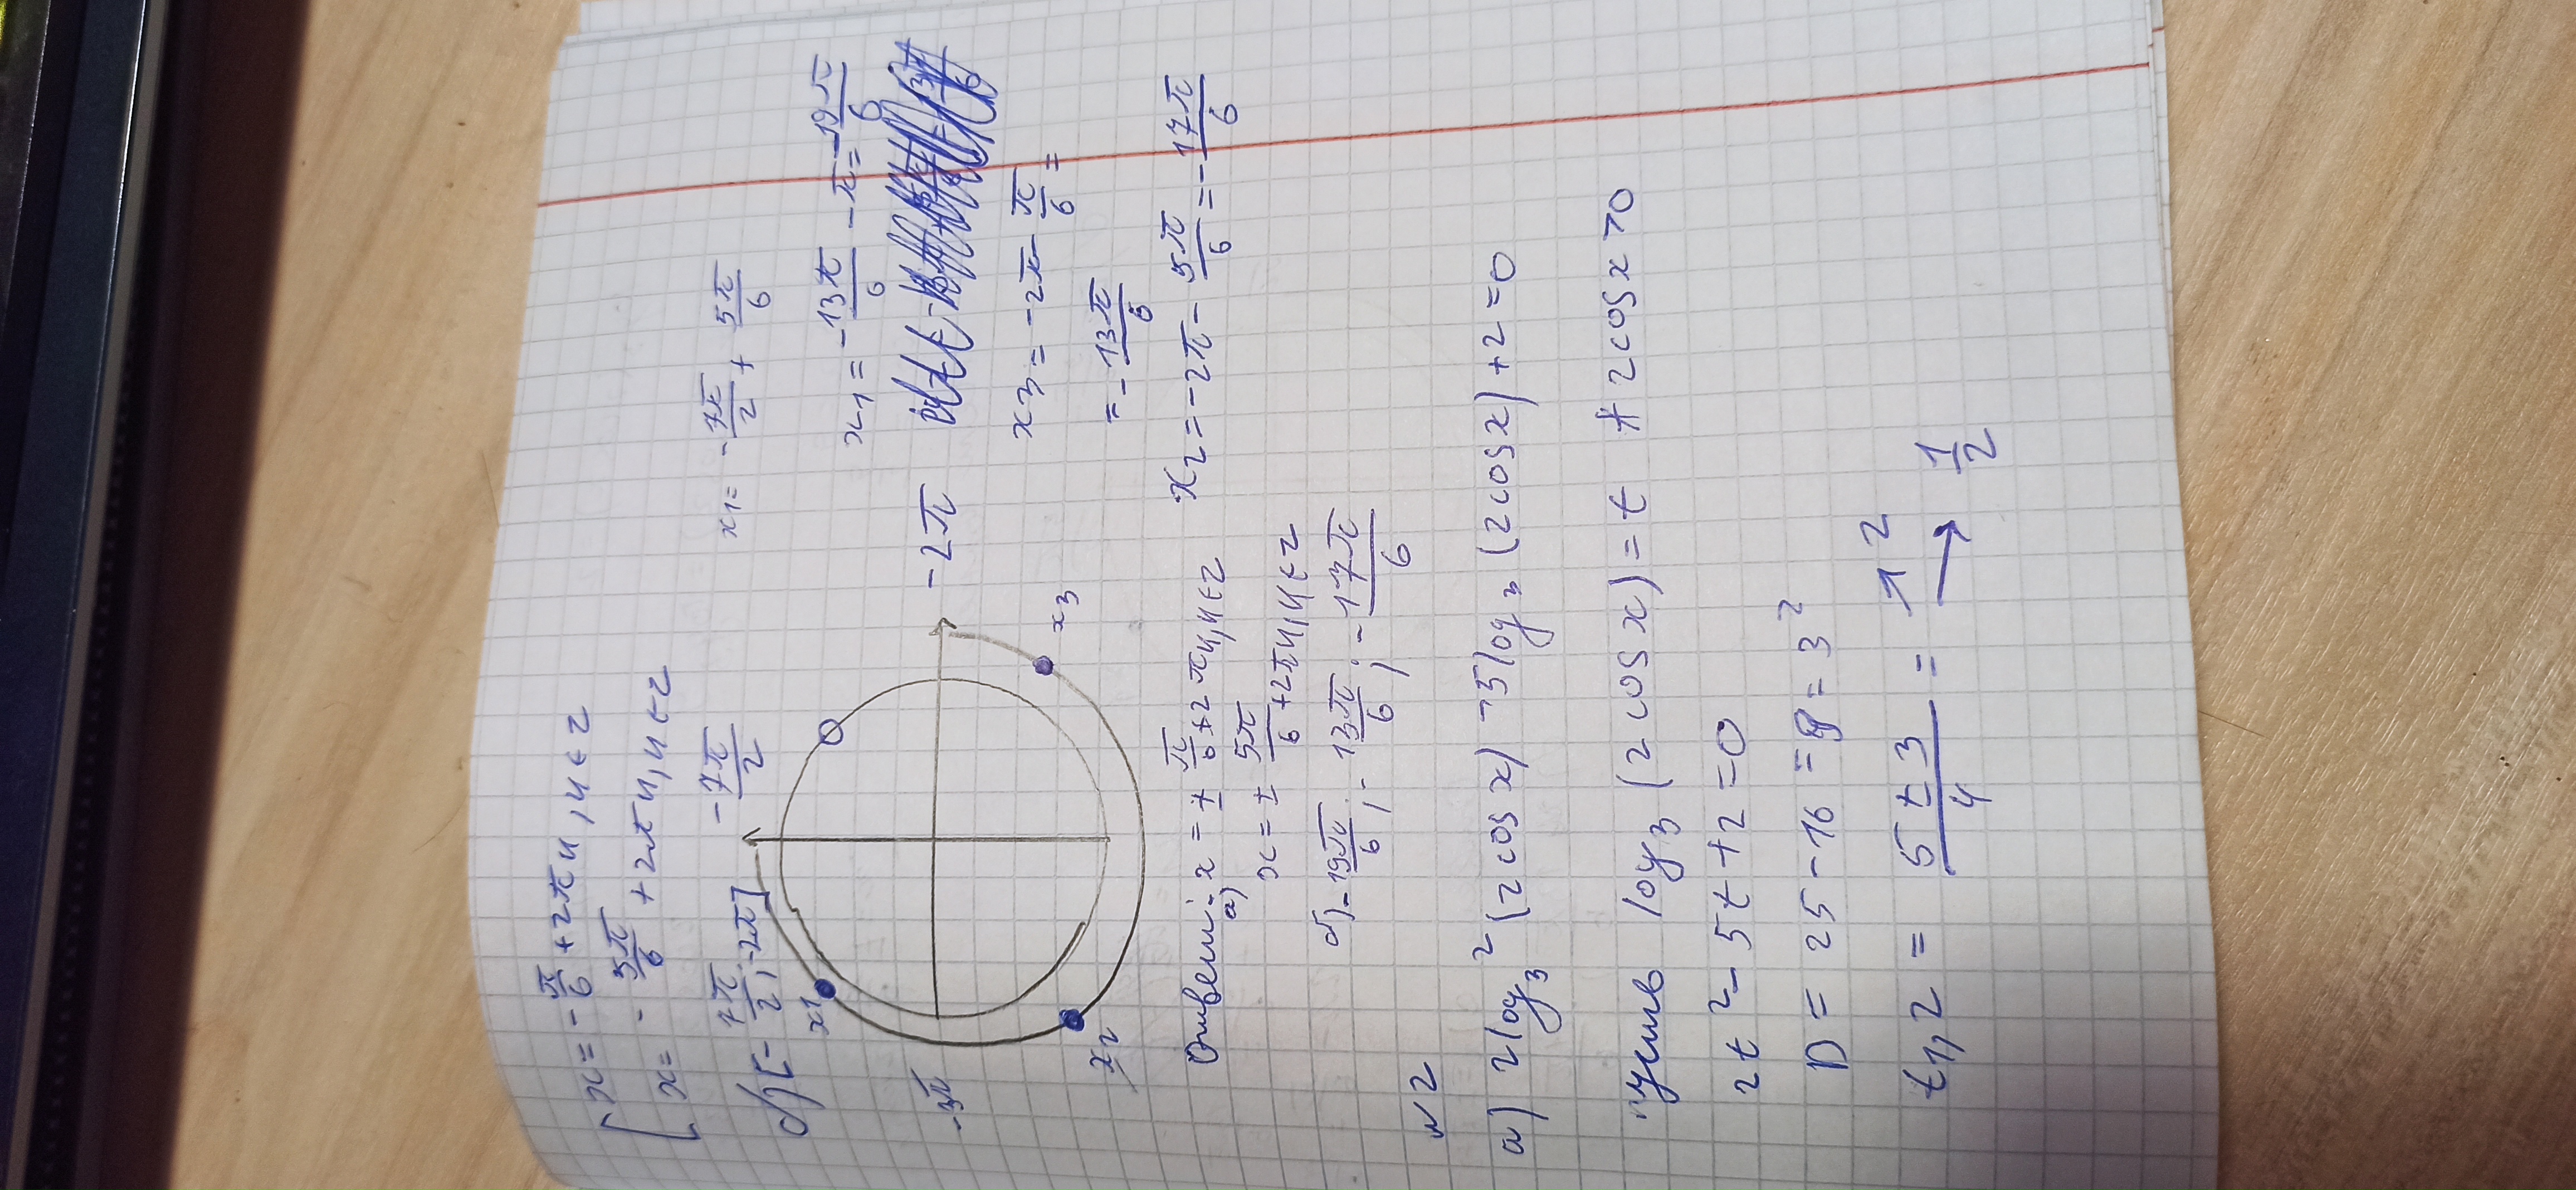 x = -π/6 + 2πn, n ∈ z
x = -5π/6 + 2πn, n ∈ z
б) [-7π/2; -2π]
-7π/2
x1 = -7π/2 + 5π/6
x1
x1 = -13π/6 - π = -19π/6
-3π
-2π
x3 = -2π - π/6 =
x3
= -13π/6
x2
x2 = -2π - 5π/6 = -17π/6
Ответ: а) x = ± π/6 + 2πn, n ∈ z
x = ± 5π/6 + 2πn, n ∈ z
б) -19π/6; -13π/6; -17π/6
№2
а) 2log₃²(2cosx) - 5log₃(2cosx) + 2 = 0
пусть log₃(2cosx) = t * 2cosx > 0
2t² - 5t + 2 = 0
D = 25 - 16 = 9 = 3²
t1,2 = (5 ± 3)/4 = ↗ 2
→ 1/2